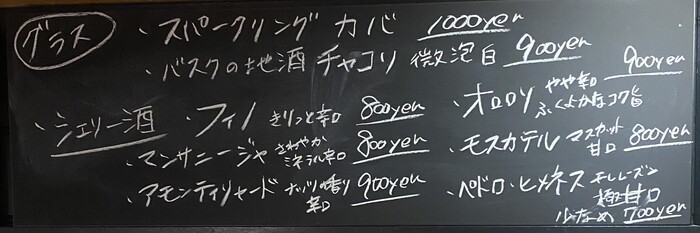 グラス
・スパークリング カバ 1000yen
・バスクの地酒 チャコリ 微泡白 900yen
・シェリー酒
・フィノ きりっと辛口 800yen
・マンサニージャ さわやか ミネラル辛口 800yen
・アモンティリャード ナッツの香り 辛口 900yen
・オロロソ やや辛口 ふくよかなコク旨 900yen
・モスカテル マスカット 甘口 800yen
・ペドロ・ヒメネス 干しレーズン 極甘口 少なめ 700yen